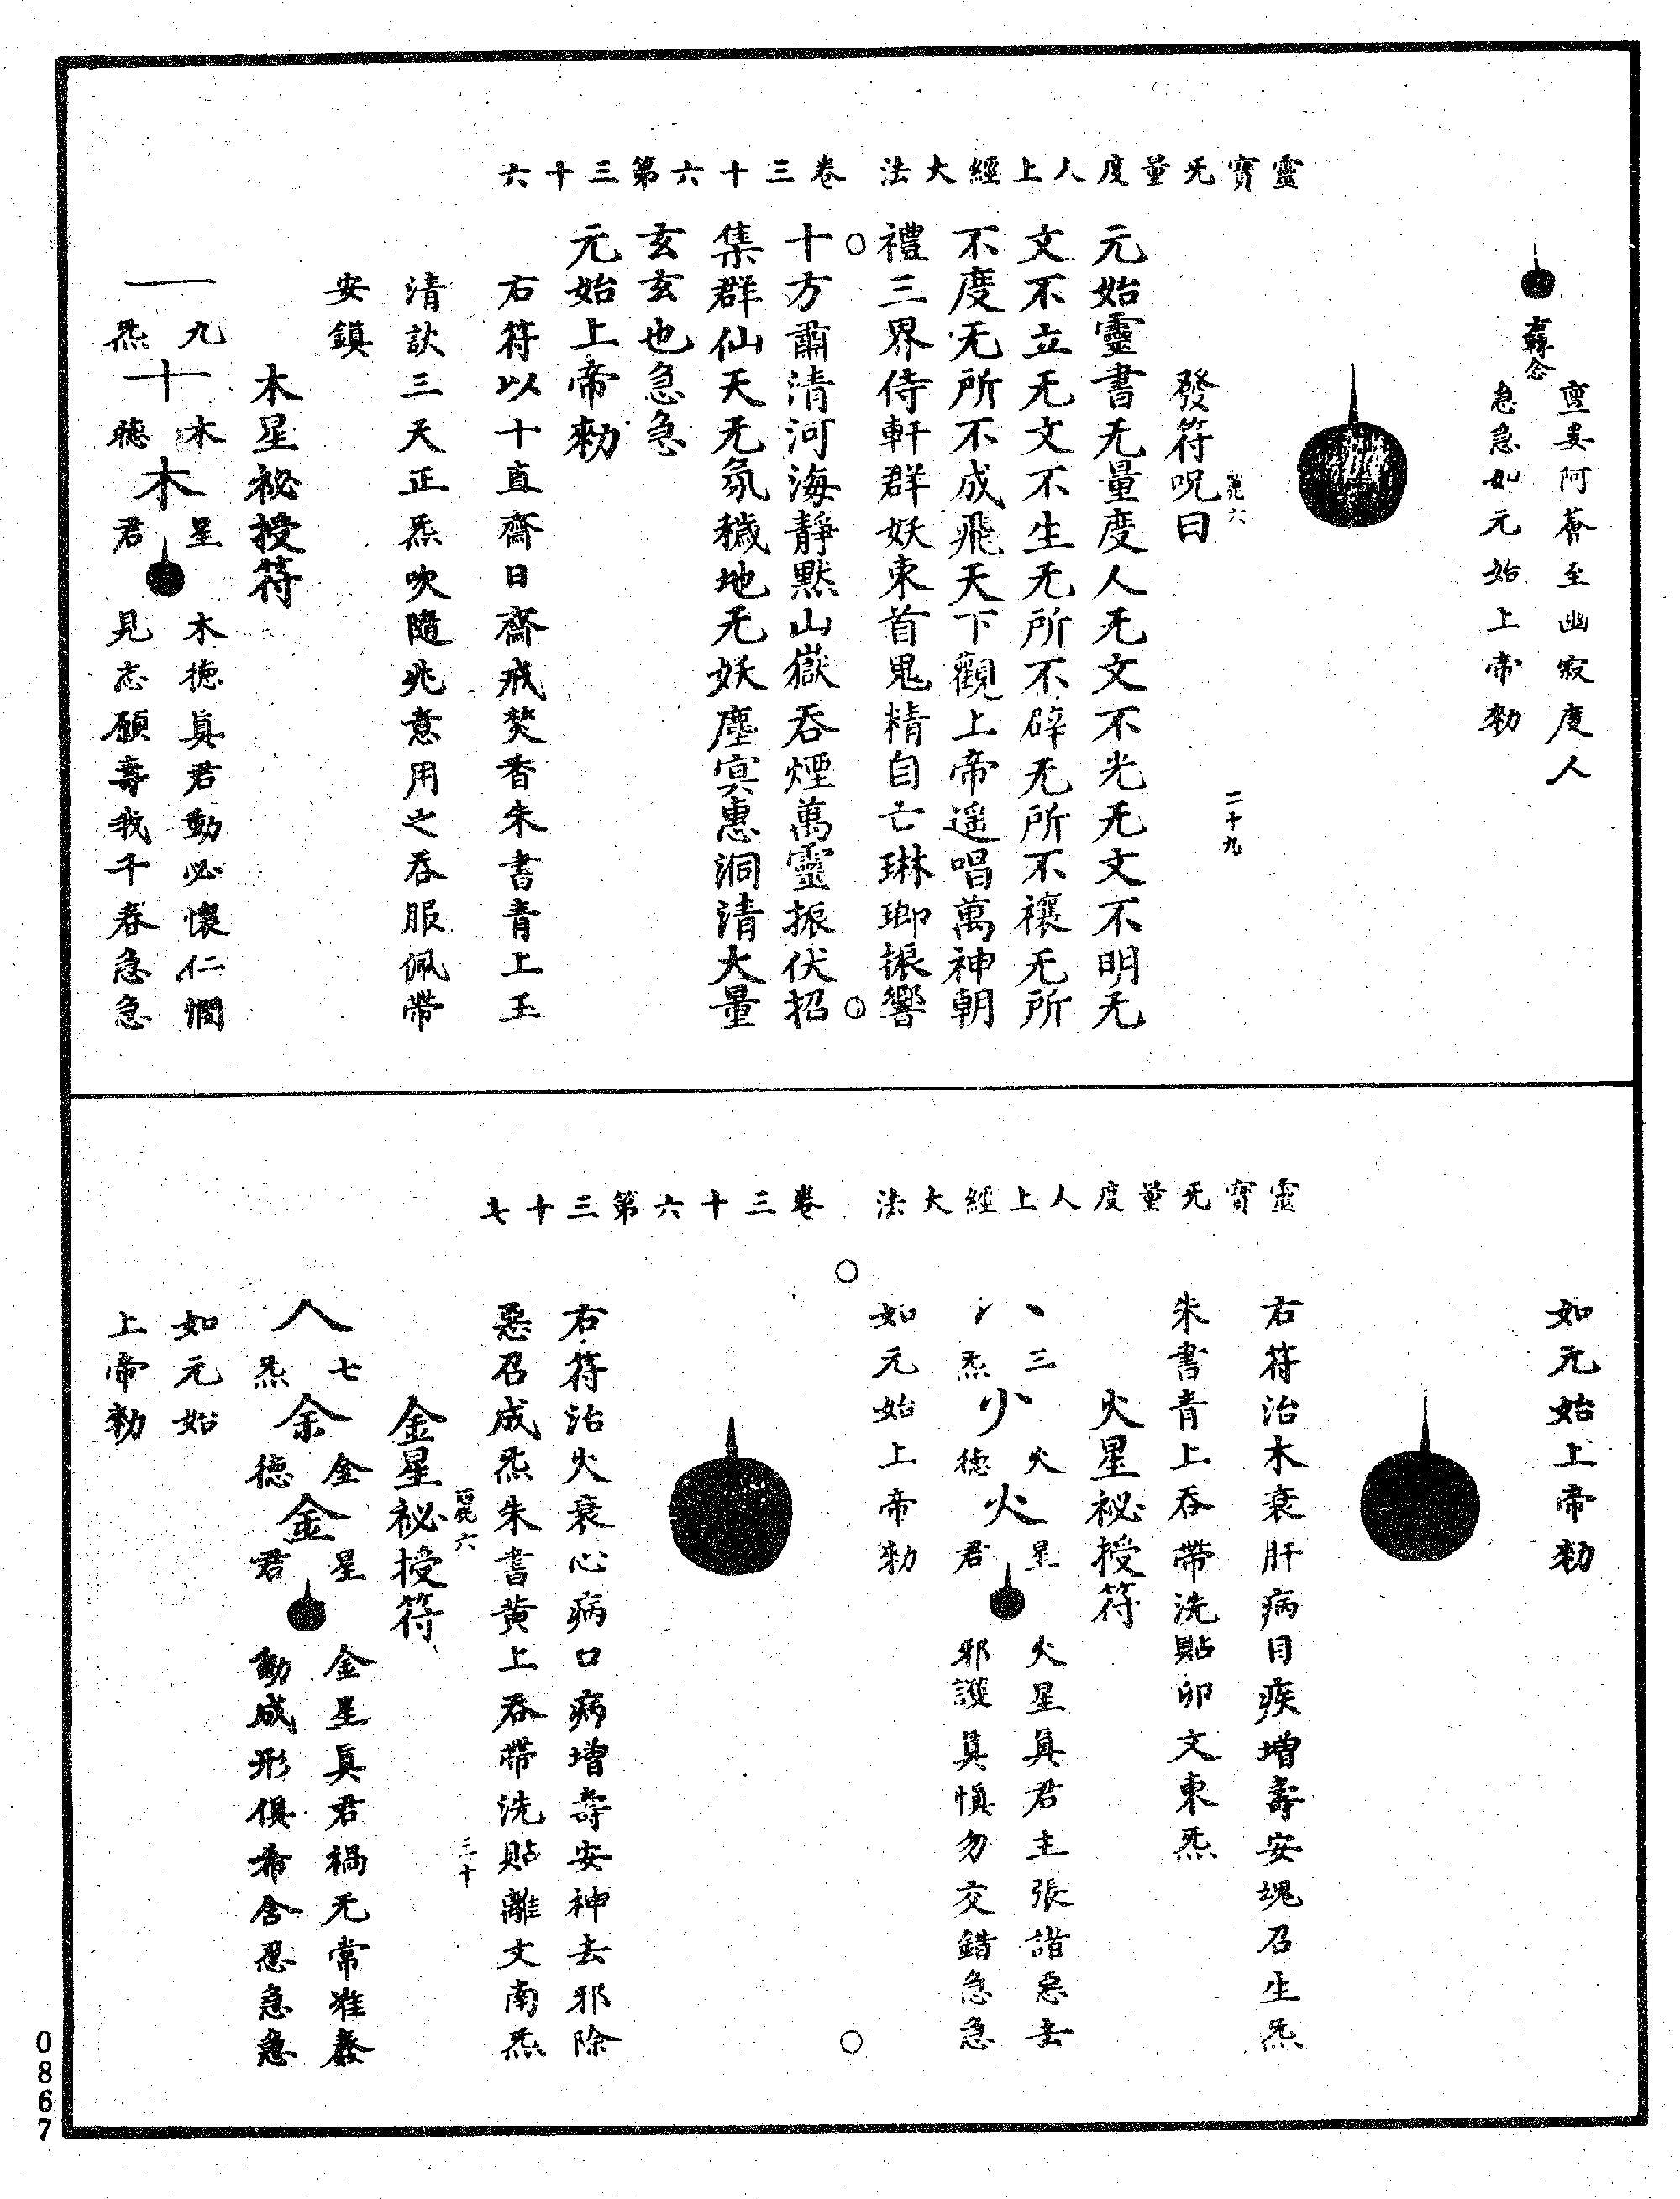 靈寶无量度人上經大法　卷三十六第三十六
阿蒼至幽寂度人
急急如元始上帝勑
麗六
二十九
發符呪曰
元始靈書无量度人无文不光无文不明无
文不立无文不生无所不辟无所不禳无所
不度无所不成飛天下觀上帝遥唱萬神朝
禮三界侍軒群妖束首鬼精自亡琳瑯振響
十方肅清河海靜默山嶽吞煙萬靈振伏招
集群仙天无氛穢地无妖塵㝠惠洞清大量
玄玄也急急
元始上帝勑
右符以十直齋日齋戒焚香朱書青上玉
清訣三天正炁吹隨兆意用之吞服佩帶
安鎮
木星祕授符
一十木
九木星　木德真君動必懷仁憫
炁德君　見志願壽我千春急急
靈寶无量度人上經大法　卷三十六第三十七
如元始上帝勑
右符治木衰肝病目疾增壽安魂召生炁
朱書青上吞帶洗貼卯文東炁
火星祕授符
三火星　火星真君主張諧惡去
炁德君　邪護真慎勿交錯急急
如元始上帝勑
右符治火衰心病口病增壽安神去邪除
惡召成炁朱書黄上吞帶洗貼離文南炁
麗六
三十
金星祕授符
人余金
七金星　金星真君禍无常准泰
炁德君　動成形俱希含忍急急
如元始
上帝勑
0867